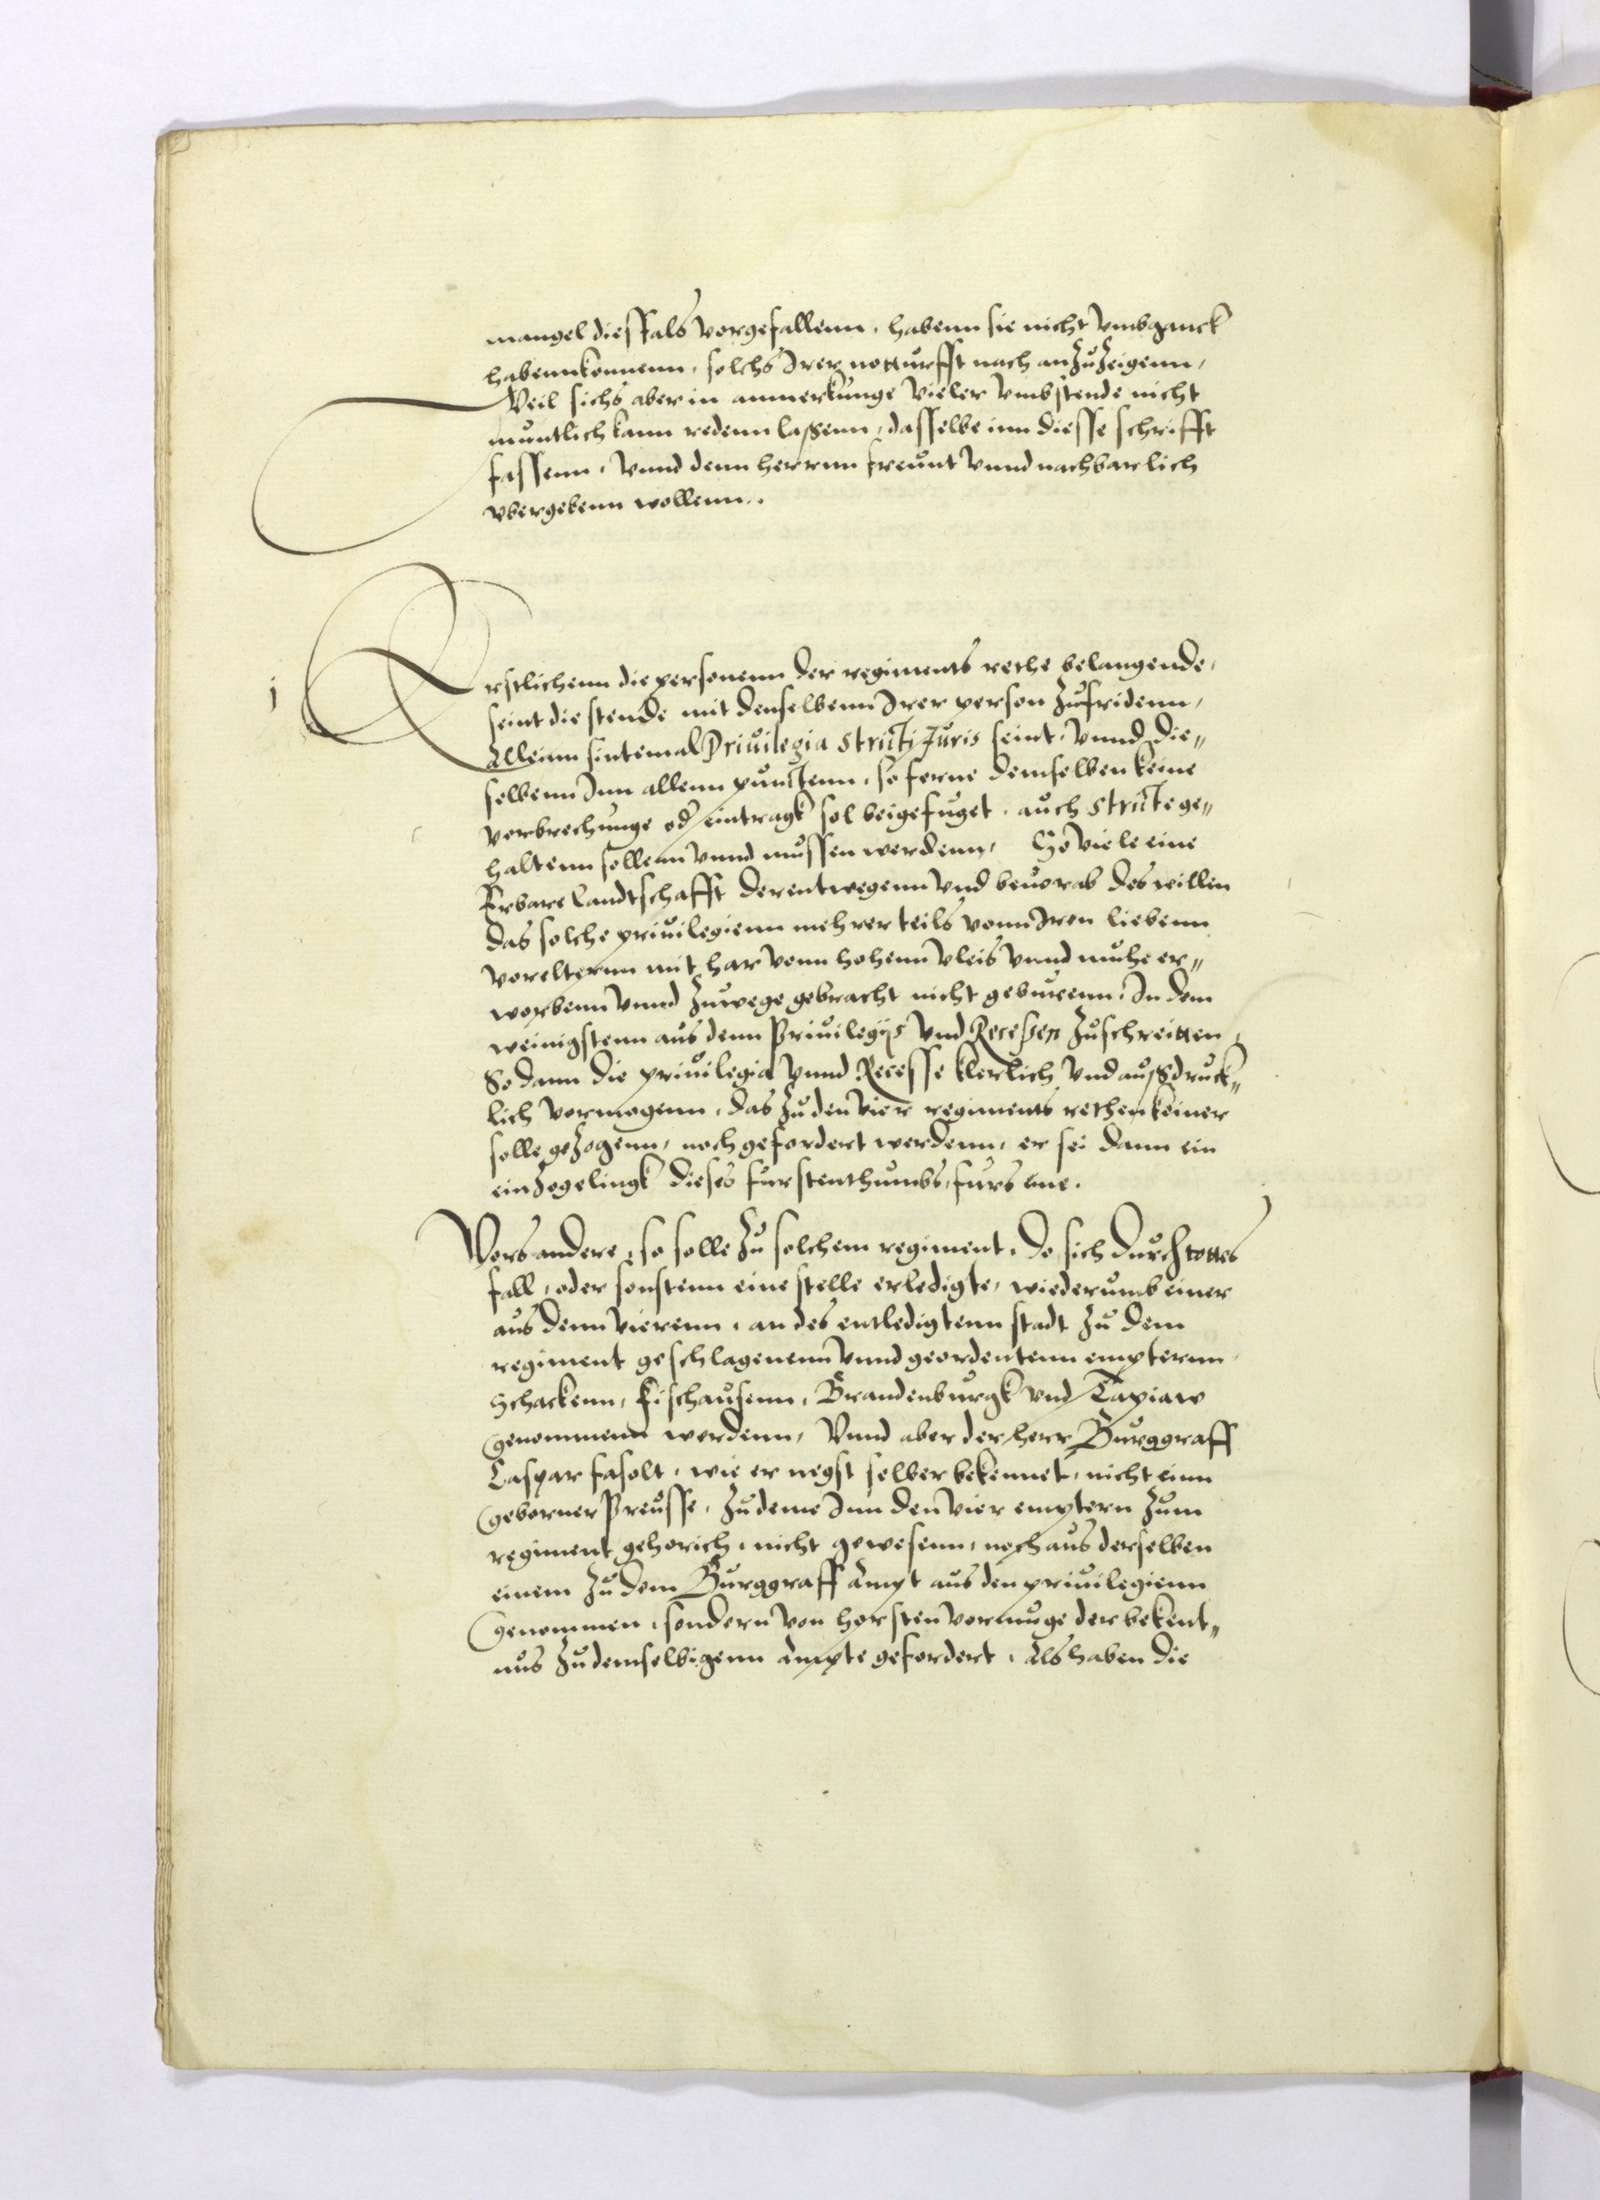 mangel diesfals vorgefallenn, habenn sie nicht vmbganck
habenn konnenn, solchs Irer notturfft nach anzuzeigenn,
Weil sichs aber in anmerkunge vieler vmbstende nicht
muntlich kann redenn laßenn, dasselbe inn diesse schrifft
fassenn, vnnd denn herrnn freunt vnnd nachbarlich
vbergebenn wollenn.
j Erstlichenn die personenn der regiments rethe belangende,
seint die stende mit denselbenn Irer person zufridenn,
Alleinn sintemal Priuilegia stricti Juris seint, vnnd die„
selbenn Inn allenn punctenn, so ferne demselben keine
vorbrechunge od eintragk sol beigefuget, auch stricte ge„
haltenn sollenn vnnd mussen werdenn, So viele eine
Erbare Landtschafft derentwegenn vnd beuorab des willen
das solche priuilegienn mehrerteils vonn Iren liebenn
vorelternn mit har vonn hohenn vleis vnnd muhe er„
worbenn vnnd zuwege gebracht nicht geburenn, In dem
weinigstenn aus denn Priuilegijs vnd Recessen zuschreitten,
So dann die priuilegia vnnd Recesse klerlich vnd außdruck„
lich vormogenn, das zu den vier regiments rethen keiner
solle gezogenn, noch gefordert werdenn, er sei dann ein
einzogelingk dieses furstenthumbs, furs eine.
Vors andere, so solle zu solchem regiment, do sich durch tottes
fall, oder sonstenn eine stelle erledigte, wiederumb einer
aus denn vierenn, an des entledigtenn stadt zu dem
regiment geschlagenenn vnnd geordentenn empternn,
Schackenn, Fischausenn, Brandenburgk vnd Tapiaw
genommenn werdenn, Vnnd aber der herr Burggraff
Caspar Fasolt, wie er negst selber bekennet, nicht einn
geborner Preusse, Zudeme Inn den vier emptern zum
regiment gehorich, nicht gewesenn, noch aus derselben
einem zu dem Burggraff Ampt aus den priuilegienn
genommen, sondern von horsten vormuge der bekent„
nus zu demselbigenn Ampte gefordert, Als haben die